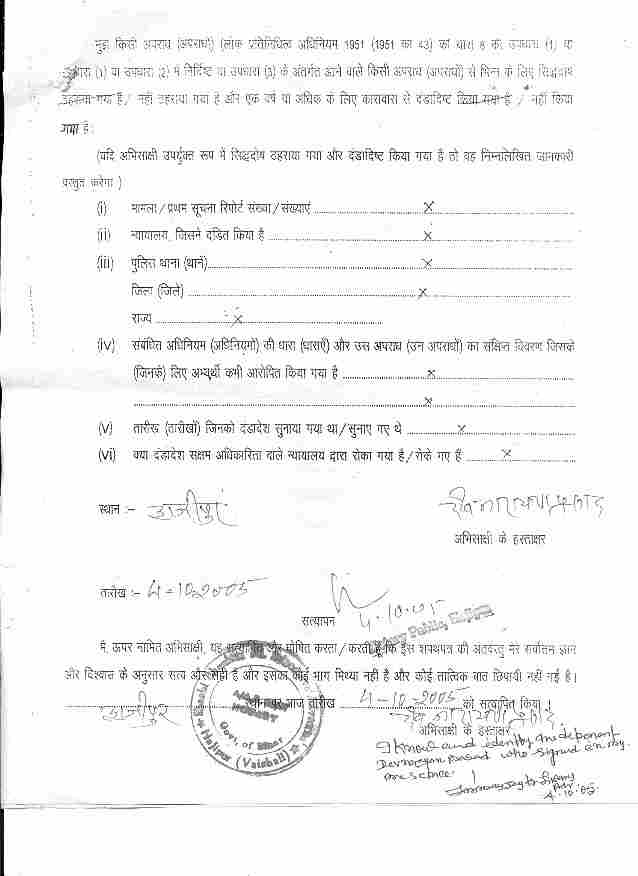 मुझे किसी अपराध (अपराधों) (लोक प्रतिनिधित्व अधिनियम 1951 (1951 का 43) की धारा 8 की उपधारा (1) या
उपधारा (1) या उपधारा (2) में निर्दिष्ट या उपधारा (3) के अंतर्गत आने वाले किसी अपराध (अपराधों) से भिन्न के लिए सिद्धदोष
ठहराया गया है / नहीं ठहराया गया है और एक वर्ष या अधिक के लिए कारावास से दंडादिष्ट किया गया है / नहीं किया
गया है :
(यदि अभिसाक्षी उपर्युक्त रूप में सिद्धदोष ठहराया गया और दंडादिष्ट किया गया है तो वह निम्नलिखित जानकारी
प्रस्तुत करेगा )
(i) मामला / प्रथम सूचना रिपोर्ट संख्या / संख्याएं ............ x ............
(ii) न्यायालय, जिसने दंडित किया है ............ x ............
(iii) पुलिस थाना (थाने)............ x ............
जिला (जिले) ............ x ............
राज्य ............ x ............
(iv) संबंधित अधिनियम (अधिनियमों) की धारा (धाराएँ) और उस अपराध (उन अपराधों) का संक्षिप्त विवरण जिसके
(जिनके) लिए अभ्यर्थी कभी आरोपित किया गया है ............ x ............
............ x ............
(v) तारीख (तारीखों) जिनको दंडादेश सुनाया गया था / सुनाए गए थे ............ x ............
(vi) क्या दंडादेश सक्षम अधिकारिता वाले न्यायालय द्वारा रोका गया है / रोके गए हैं ............ x ............
स्थान :- हाजीपुर
अभिसाक्षी के हस्ताक्षर
तारीख :- 4-10-2005
4.10.05
सत्यापन
Notary Public, Hajipur
मैं, ऊपर नामित अभिसाक्षी, यह सत्यापित और घोषित करता / करती हूँ कि इस शपथपत्र की अंतर्वस्तु मेरे सर्वोत्तम ज्ञान
और विश्वास के अनुसार सत्य और सही है और इसका कोई भाग मिथ्या नहीं है और कोई तात्विक बात छिपायी नहीं गई है।
हाजीपुर स्थान पर आज तारीख 4-10-2005 को सत्यापित किया।
NOTARY
Govt. of Bihar
Hajipur (Vaishali)
अभिसाक्षी के हस्ताक्षर
I know and identify the deponent
who signed in my
presence.
4.10.05